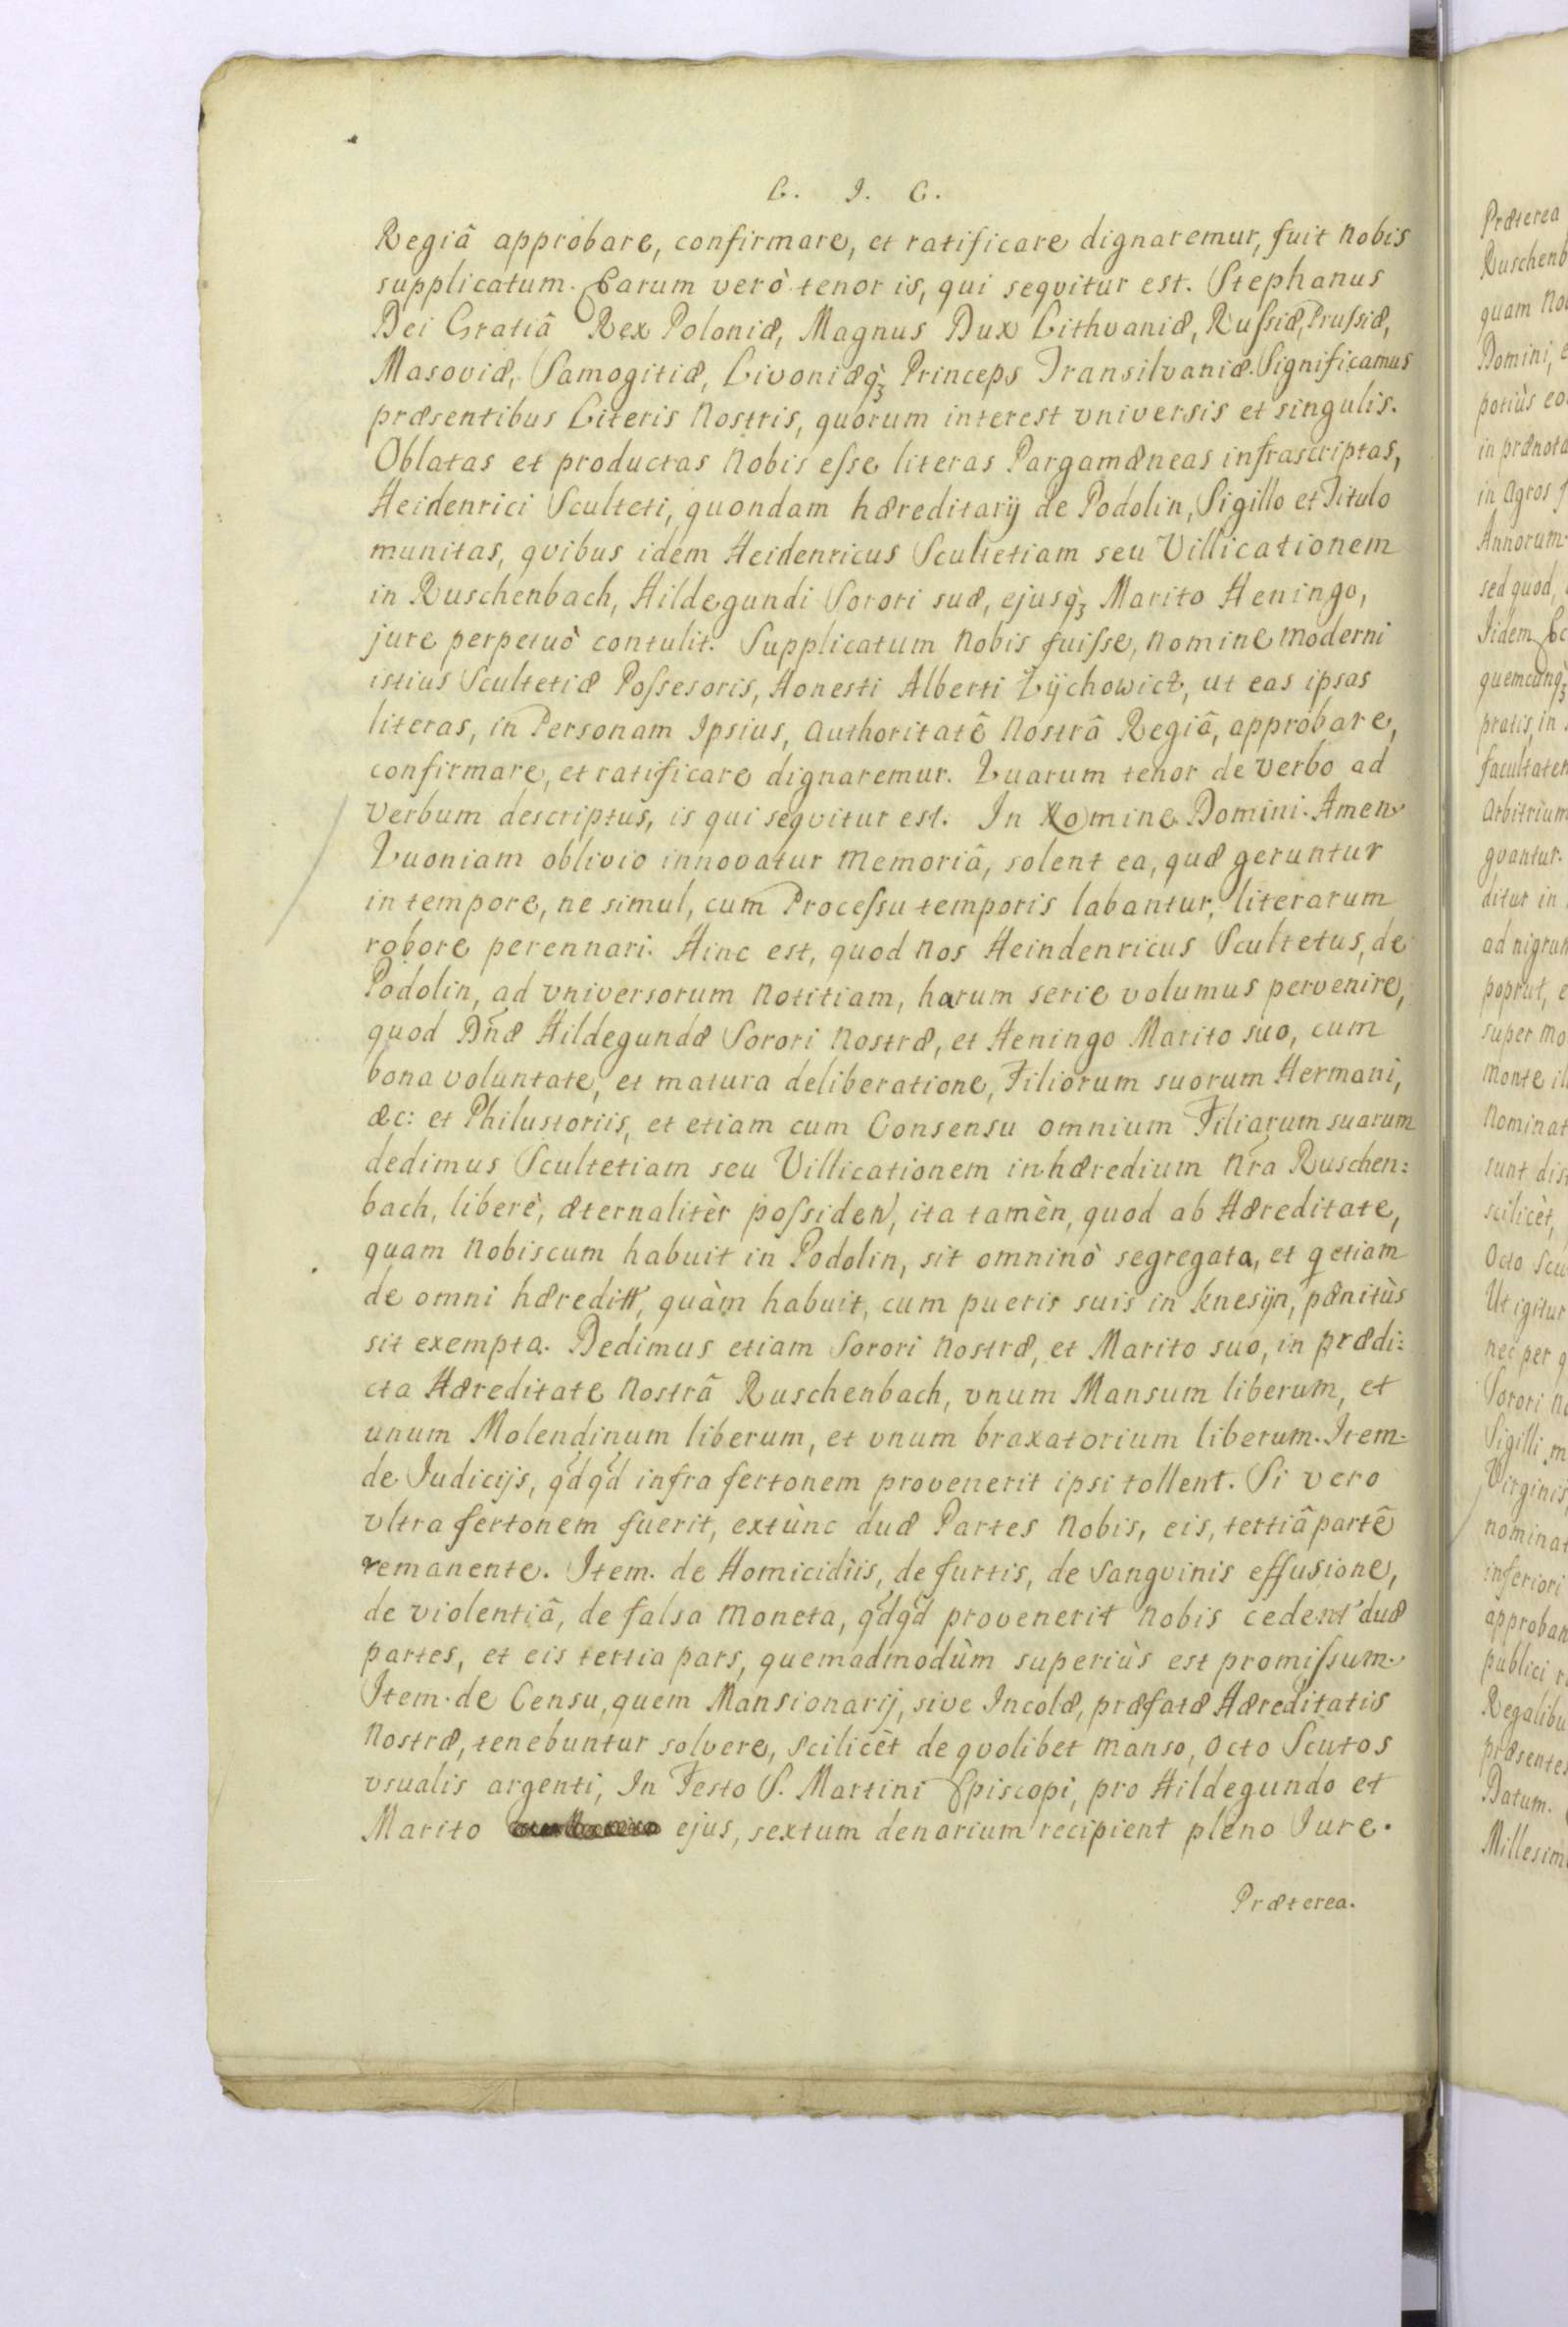 L. J. C.
Regiâ approbare, confirmare, et ratificare dignaremur, fuit Nobis
supplicatum. Earum verò tenor is, qui seqvitur est. Stephanus
Dei Gratiâ Rex Poloniæ, Magnus Dux Lithvaniæ, Rufsiæ, Prufsiæ,
Masoviæ, Samogitiæ, Livoniæq̀ꝫ Princeps Transilvaniæ. Significamus
præsentibus Literis Nostris, quorum interest vniversis et singulis.
Oblatas et productas Nobis efse literas Pargamæneas infrascriptas,
Heidenrici Sculteti, quondam hæreditarij de Podolin, Sigillo et Titulo
munitas, qvibus idem Heidenricus Scultetiam seu Villicationem
in Ruschenbach, Hildegundi Sorori suæ, ejusq̀ꝫ Marito Heningo,
jure perpetuò contulit. Supplicatum Nobis fuifse, nomine moderni
istius Scultetiæ Pofsesoris, Honesti Alberti Zÿchowicz, ut eas ipsas
literas, in Personam Ipsius, Authoritatê Nostrâ Regiâ, approbare,
confirmare, et ratificare dignaremur. Quarum tenor de verbo ad
verbum descriptus, is qui seqvitur est. In Nomine Domini. Amen
Quoniam oblivio innovatur memoriâ, solent ea, quæ geruntur
in tempore, ne simul, cum Procefsu temporis labantur, literarum
robore perennari. Hinc est, quod Nos Heindenricus Scultetus, de
Podolin, ad vniversorum Notitiam, harum serie volumus pervenire,
quod Dñæ Hildegundæ Sorori Nostræ, et Heningo Marito suo, cum
bona voluntate, et matura deliberatione, Filiorum suorum Hermani,
æc: et Philustoriis, et etiam cum Consensu omnium Filiarum suarum
dedimus Scultetiam seu Villicationem in hæredium Nr̃a Ruschen:
bach, liberè, æternalitèr pofsiden, ita tamèn, quod ab Hæreditate,
quam Nobiscum habuit in Podolin, sit omninò segregata, et q etiam
de omni hæreditt, quàm habuit, cum pueris suis in Knesijn, pænitùs
sit exempta. Dedimus etiam Sorori Nostræ, et Marito suo, in prædi:
cta Hæreditate Nostrâ Ruschenbach, vnum Mansum liberum, et
unum Molendinum liberum, et vnum braxatorium liberum. Item.
de Judicijs, qdqd infra fertonem provenerit ipsi tollent. Si vero
vltra fertonem fuerit, extùnc duæ Partes Nobis, eis, tertiâ partê
remanente. Item. de Homicidiis, de furtis, de sangvinis effusione,
de violentiâ, de falsa Moneta, qdqd provenerit Nobis cedent duæ
partes, et eis tertia pars, quemadmodùm superiùs est promifsum.
Item. de Censu, quem Mansionarij, sive Incolæ, præfatæ Hæreditatis
Nostræ, tenebuntur solvere, scilicèt de qvolibet manso, octo Scutos
vsualis argenti, In Festo S. Martini Episcopi, pro Hildegundo et
Marito ejus, sextum denarium recipient pleno Jure.
Præterea.
Præterea
Ruschenb
quam No
Domini, e
potiùs eo
in prænota
in Agros
Annorum
sed quod,
Iidem
quemcunq̀ꝫ
pratis, in
facultatem
arbitrium
gvantur.
ditur in
ad nigrum
poprut, e
super mo
monte il
Nominat
sunt dis
scilicèt,
Octo Scu
Ut igitur
nec per q
Sorori No
Sigilli m
Virginis,
nominat
inferiori
approban
publici r
Regalibu
præsentes
Datum.
Millesimo